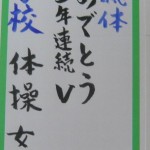 体
めでとう
年連続V
校 体操女